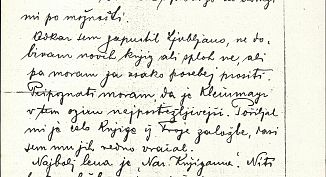 mi po možnosti.
Odkar sem zapustil Ljubljano, ne do-
bivam novih knjig ali sploh ne, ali
pa moram za vsako posebej prositi.
Pripoznati moram da je Kleinmayr
v tem oziru najpostrežljivejši. Pošiljal
mi je celo knjige iz Tvoje založbe, dasi
sem mu jih redno vračal.
Najbolj lena je Nar. Knjigarna. Niti